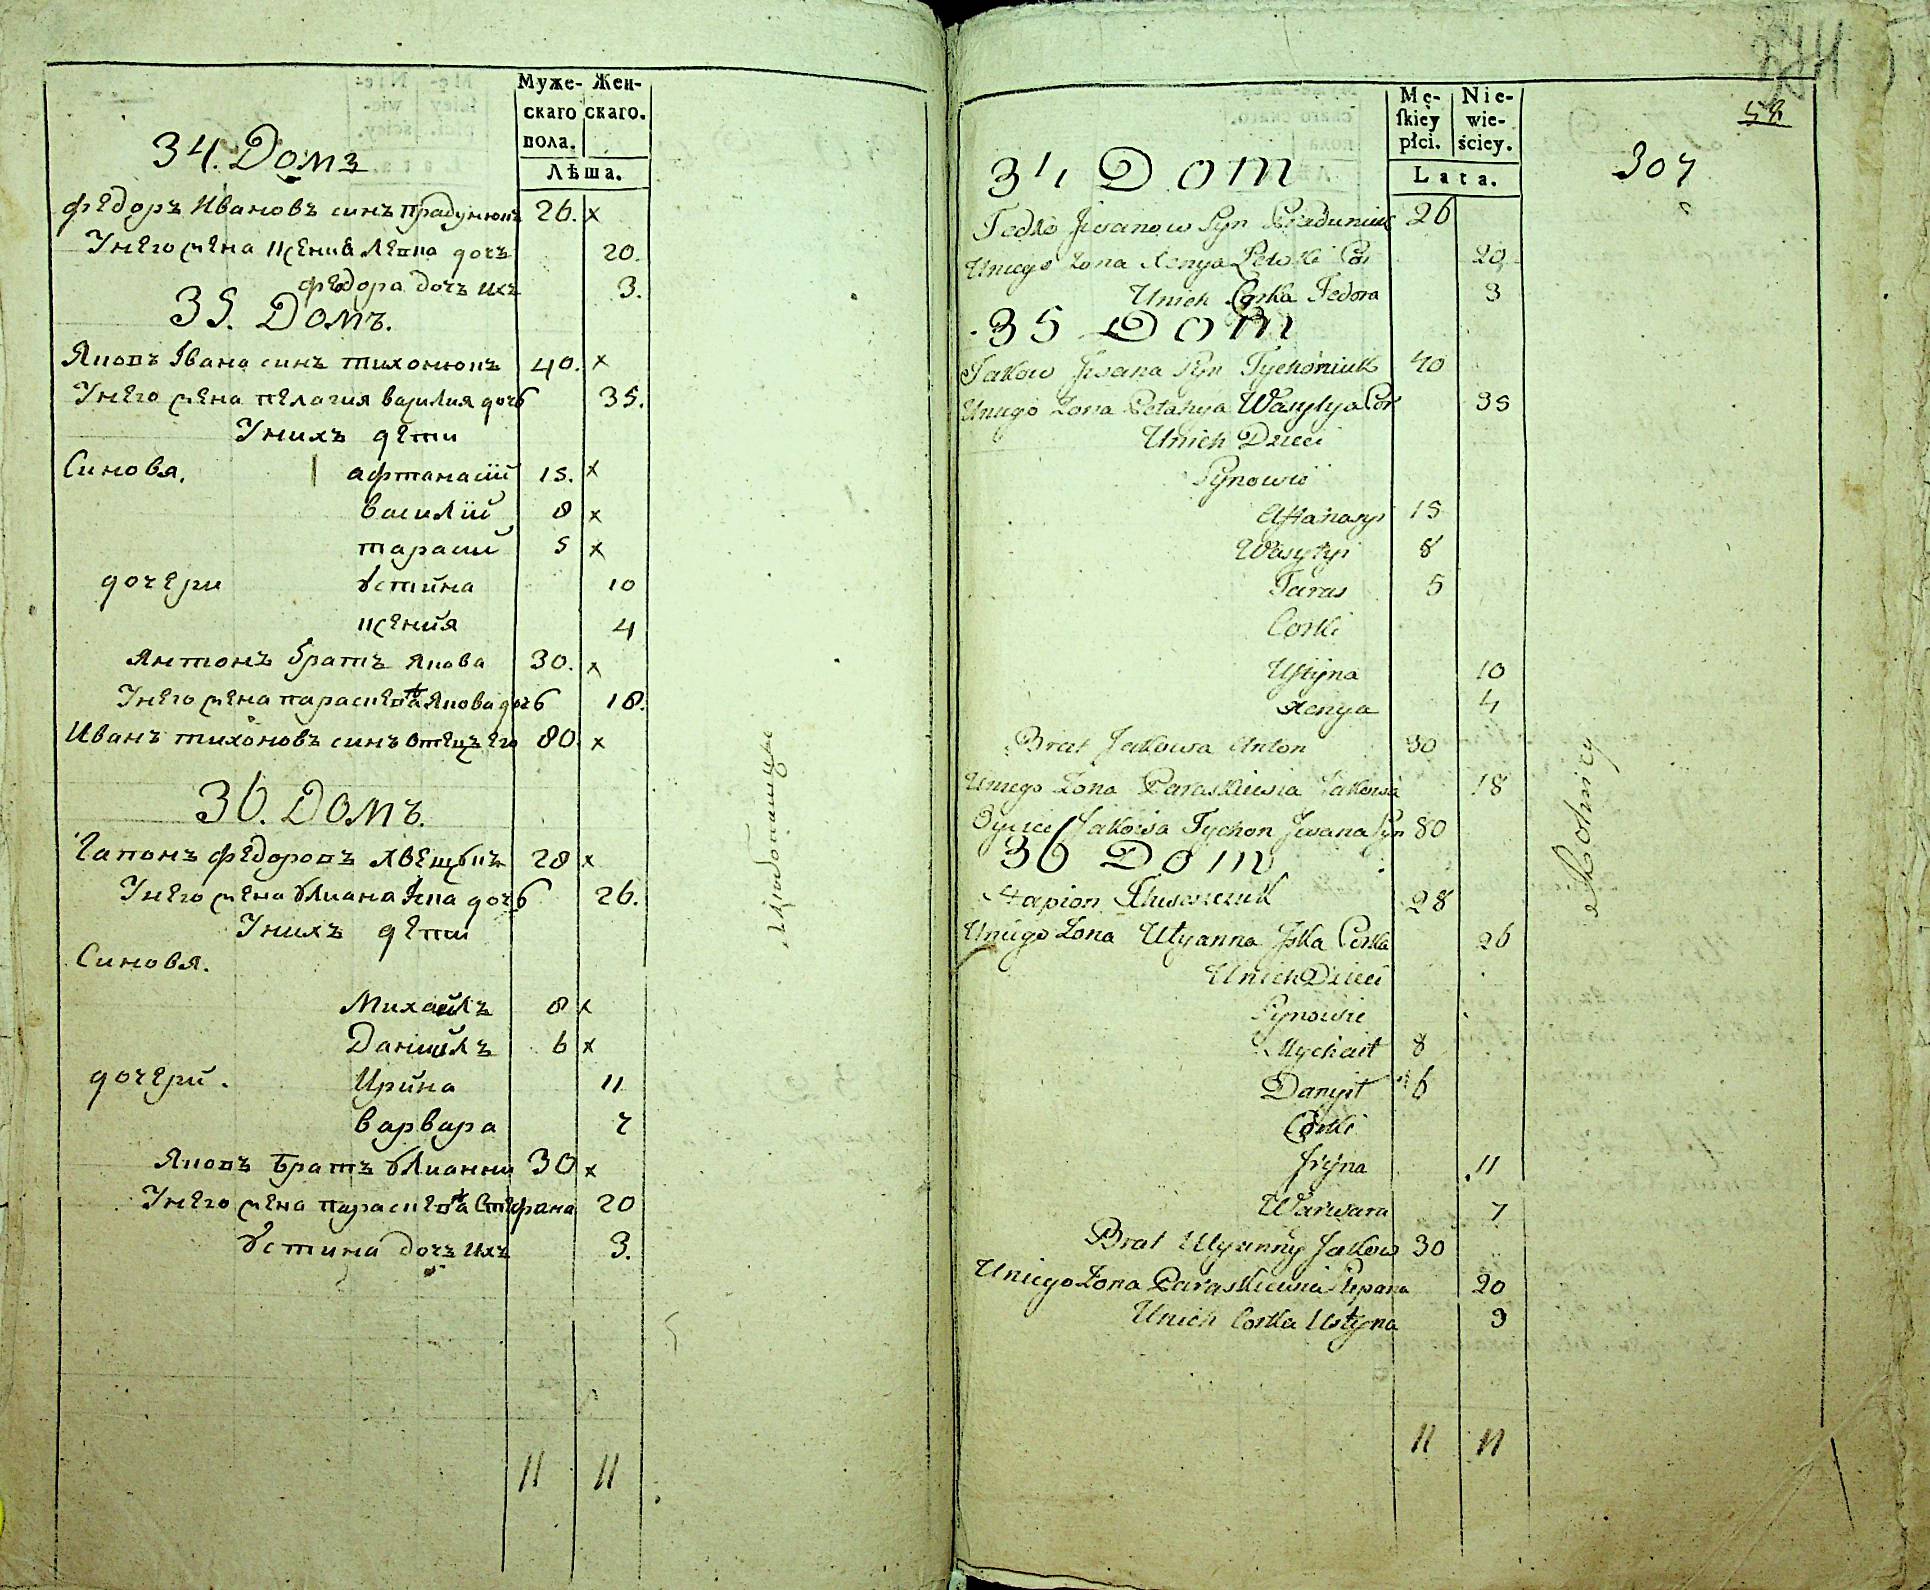 Муже- Жен-
скаго скаго.
пола.
Лѣта.
34. Домъ
Федоръ Ивановъ синъ Прадунюкъ 26. x
Унего жена Ксения Левка дочъ 20.
Федора дочъ ихъ 3.
35. Домъ.
Яковъ Івана синъ Тихонюкъ 40. x
Унего жена Пелагия Василия дочь 35.
Унихъ дети
Синовя. афтанасій 15. x
василій 8 x
тарасий 5 x
дочери устина 10
ксения 4
Антонъ братъ якова 30. x
Унего жена параскева Якова дочь 18.
Иванъ тихоновъ синъ отецъ его 80. x
36. Домъ.
Гапонъ Федоровъ 28 x
Унего жена улиана Іска дочь 26.
Унихъ дети
Синовя.
Михайлъ 8 x
Даніилъ 6 x
дочери. Ирина 11
варвара 7
Яковъ братъ улианни 30 x
Унего жена параскева Стефана 20
устина дочъ ихъ 3.
11 11
58
307
Mę- Nie-
skiey wie-
płci. ściey.
Lata.
34 Dom
Fedko Jwanow Syn Praduniuk 26
Uniego Zona Xenya Lewki Cor 20
Unich Corka Fedora 3
35 Dom
Jakow Jwana Syn Tychoniuk 40
Uniego Zona Pelahya Wasylya Cor 35
Unich Dzieci
Synowie
Aftanasyi 15
Wasylyi 8
Taras 5
Corki
Ustyna 10
Xenya 4
Brat Jakowa Anton 30
Uniego Zona Paraskiewia Jakowa 18
Oyciec Jakowa Tychon Jwana Syn 80
36 Dom
Hapion 28
Uniego Zona Ulyanna Jska Corka 26
Unich Dzieci
Synowie
Mychail 8
Danyił 6
Corki
Jryna 11
Warwara 7
Brat Ulyanny Jakow 30
Uniego Zona Paraskiewia Stepana 20
Unich Corka Ustyna 3
Rolnicy
11 11